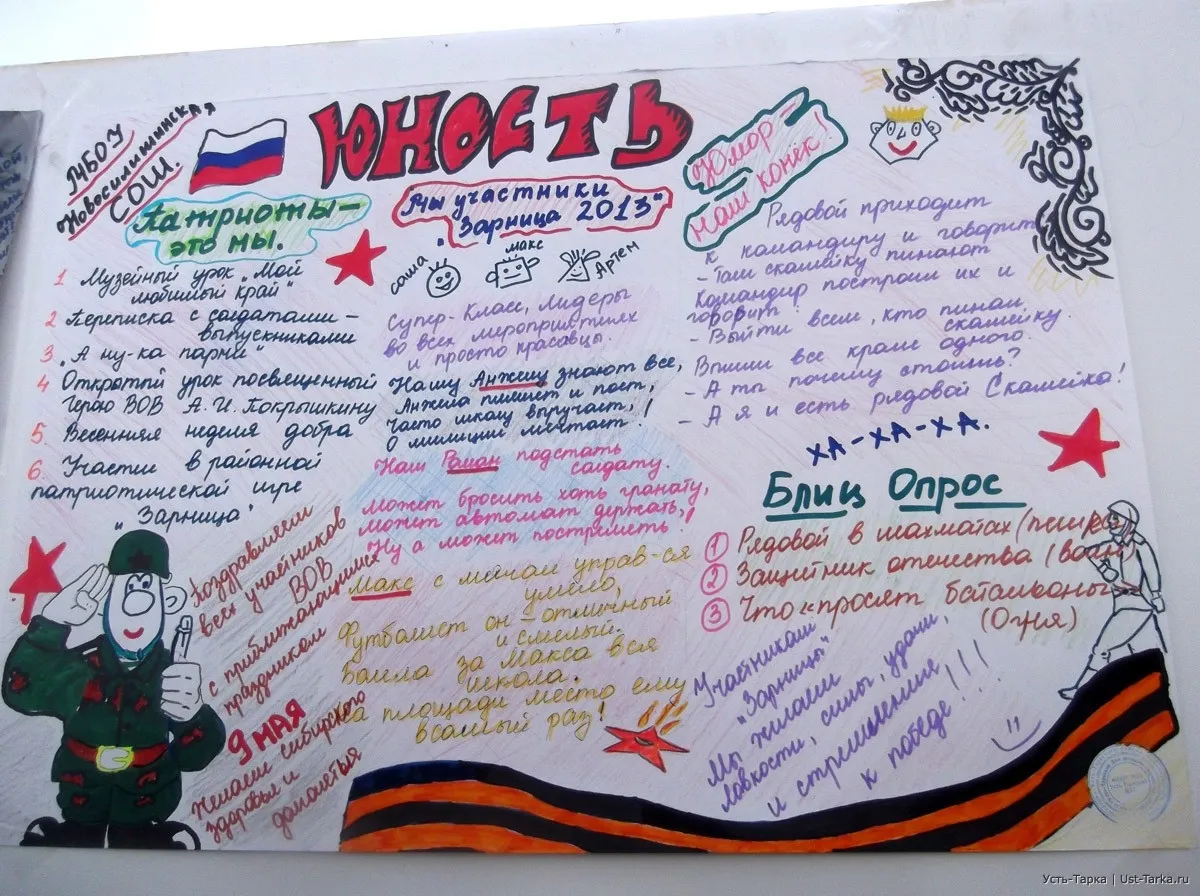 МБОУ
Новосилишинская
СОШ.
ЮНОСТЬ
Патриоты –
это мы.
1 Музейный урок „Мой
любимый край"
2 Переписка с солдатами –
выпускниками
3. „А ну-ка парни"
4 Открытый урок посвященный
Герою ВОВ А.И. Покрышкину
5. Весенняя неделя добра
6. Участие в районной
патриотической игре
„Зарница"
Поздравляем
всех участников
ВОВ
с приближающимся
праздником
9 МАЯ
Желаем сибирского
здоровья и
долголетья
Мы участники
„Зарница 2013"
саша
макс
Артем
Супер-Класс, Лидеры
во всех мероприятиях
и просто красавцы.
Нашу Анжелу знают все,
Анжела пишет и поёт,
Часто школу выручает,
О милиции мечтает!
Наш Роман подстать
солдату.
Может бросить хоть гранату,
может автомат держать,
Ну а может пострелять!
Макс с мячом управ-ся
умело,
Футболист он – отличный
и смелый.
Болела за Макса вся
школа.
На площади место ему
всякий раз!
Юмор –
наш конёк!
Рядовой приходит
к командиру и говорит
– Там скамейку пинают
Командир построил их и
говорит
– Выйти всем, кто пинал
скамейку.
Вышли все кроме одного.
– А ты почему стоишь?
– А я и есть рядовой Скамейка!
ХА-ХА-ХА.
Блиц Опрос
1 Рядовой в шахматах (пешка)
2 Защитник отечества (воин)
3 Что «просят» батальоны
(Огня)
Участникам
„Зарницы"
Мы желаем
ловкости, силы, удачи,
и стремления
к победе!!!
Усть-Тарка | Ust-Tarka.ru